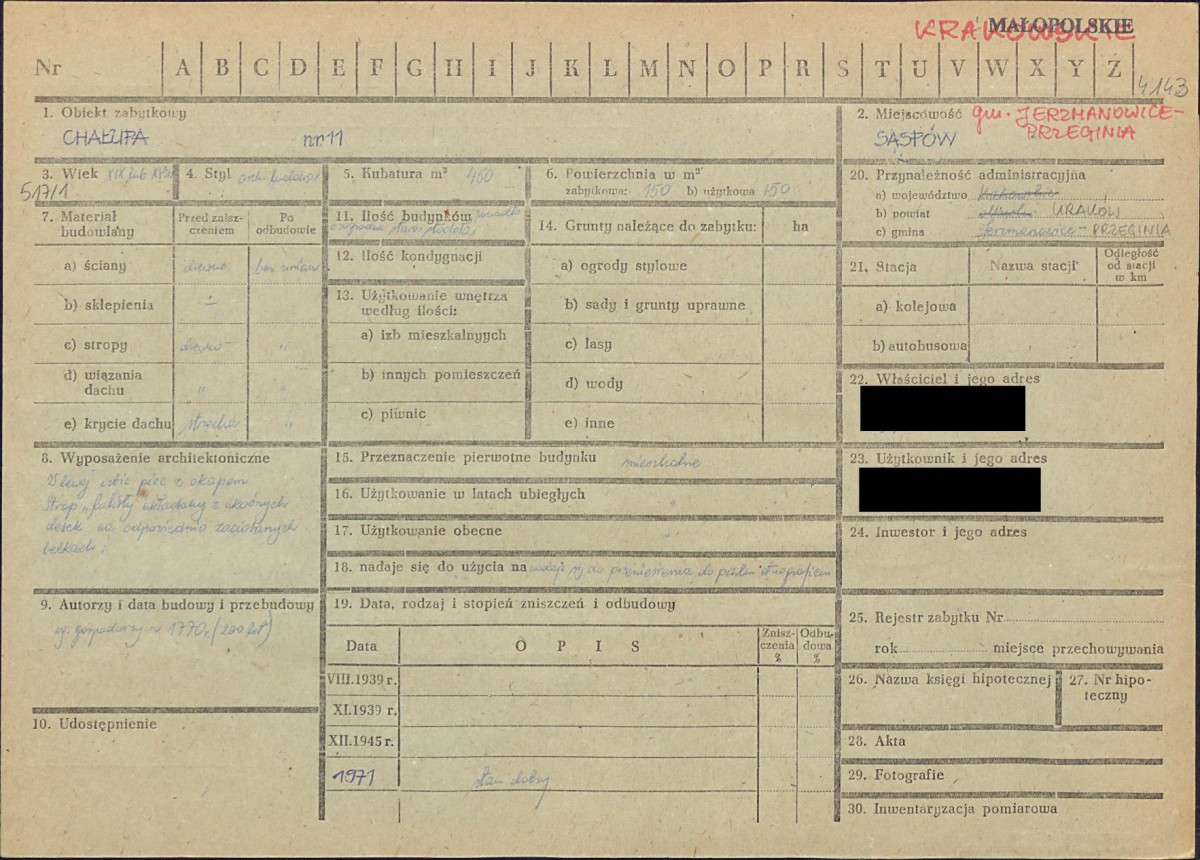 KRAKOWSKIE
MAŁOPOLSKIE
Nr A B C D E F G H I J K L M N O P R S T U V W X Y Z
4143
1. Obiekt zabytkowy
CHAŁUPA nr 11
2. Miejscowość gm. JERZMANOWICE-
PRZEGINIA
SĄSPÓW
3. Wiek XIX lub XVIII
517/1
4. Styl arch. ludowa
5. Kubatura m³ 450
6. Powierzchnia w m²
zabytkowa: 150 b) użytkowa 150
20. Przynależność administracyjna
a) województwo Krakowskie
b) powiat Olkusz KRAKÓW
c) gmina Jerzmanowice - PRZEGINIA
7. Materiał
budowlany
Przed znisz-
czeniem
Po
odbudowie
a) ściany drewno bez zmian
b) sklepienia
c) stropy drewno "
d) wiązania
dachu " "
e) krycie dachu strzecha "
11. Ilość budynków
12. Ilość kondygnacji
13. Użytkowanie wnętrza
według ilości:
a) izb mieszkalnych
b) innych pomieszczeń
c) piwnic
14. Grunty należące do zabytku: ha
a) ogrody stylowe
b) sady i grunty uprawne
c) lasy
d) wody
e) inne
21. Stacja Nazwa stacji
Odległość
od stacji
w km
a) kolejowa
b) autobusowa
22. Właściciel i jego adres
23. Użytkownik i jego adres
24. Inwestor i jego adres
8. Wyposażenie architektoniczne
W lewej izbie piec z okapem
Strop układany z ukośnych
desek na odpowiednio zaciosanych
belkach.
15. Przeznaczenie pierwotne budynku mieszkalne
16. Użytkowanie w latach ubiegłych "
17. Użytkowanie obecne "
18. nadaje się do użycia na nadaje się do przeniesienia do parku etnograficzn
9. Autorzy i data budowy i przebudowy
wg. gospodarzy z 1770 r. (200 lat)
10. Udostępnienie
19. Data, rodzaj i stopień zniszczeń i odbudowy
Data OPIS
Znisz-
czenia
%
Odbu-
dowa
%
VIII.1939 r.
XI.1939 r.
XII.1945 r.
1971 stan dobry
25. Rejestr zabytku Nr
rok miejsce przechowywania
26. Nazwa księgi hipotecznej
27. Nr hipo-
teczny
28. Akta
29. Fotografie
30. Inwentaryzacja pomiarowa